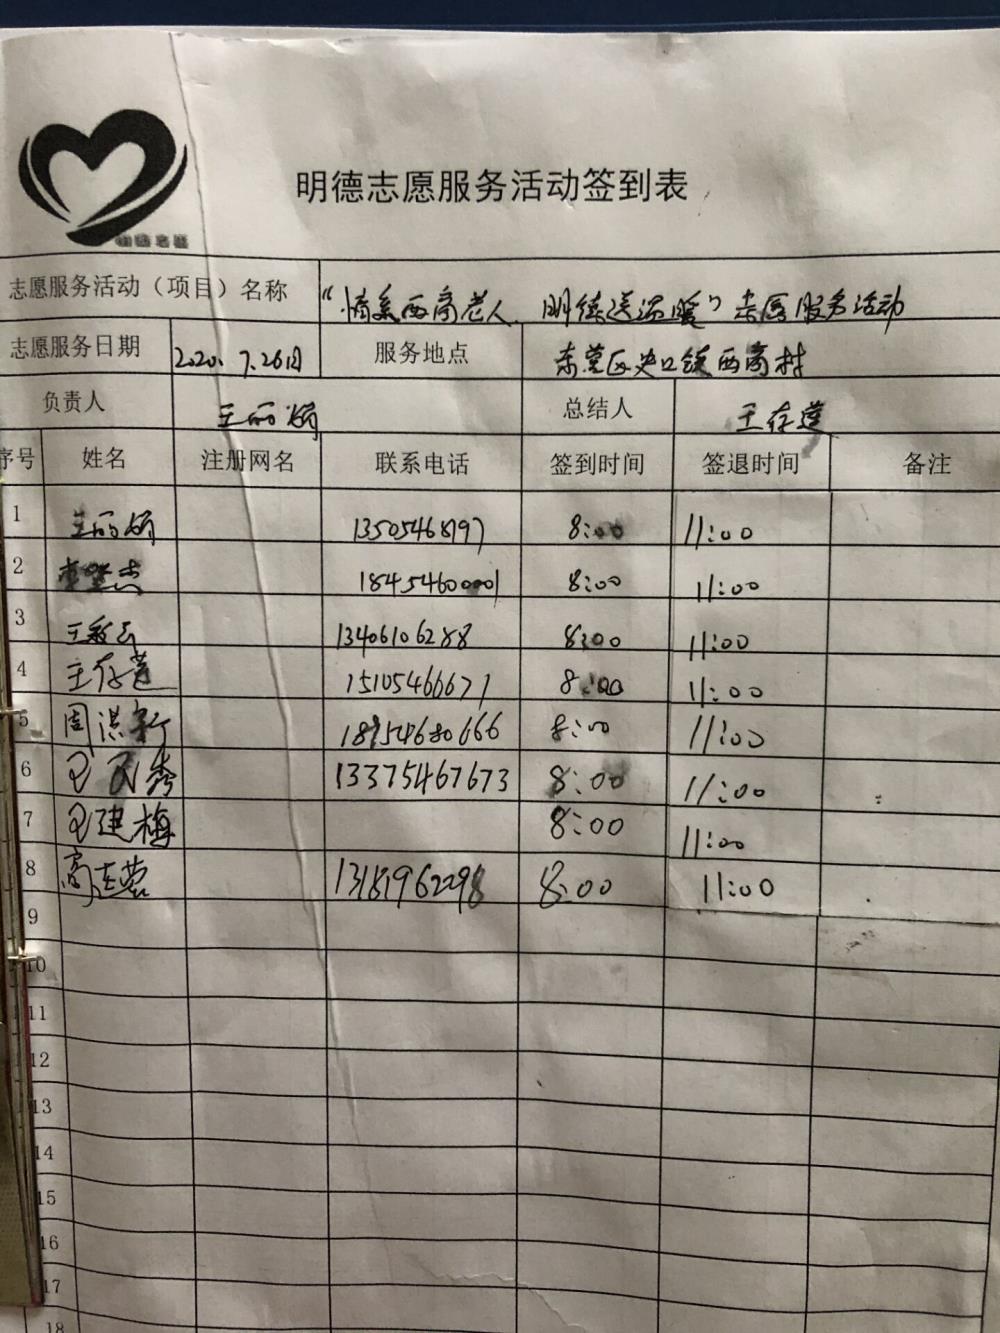 明德志愿
明德志愿服务活动签到表
志愿服务活动（项目）名称 "情系西商老人、明德送温暖"志愿服务活动
志愿服务日期 2020.7.26日 服务地点 东营区史口镇西商村
负责人 王丽娟 总结人 王存莲
序号 姓名 注册网名 联系电话 签到时间 签退时间 备注
1 王丽娟 13505468197 8:00 11:00
2 18454600001 8:00 11:00
3 13406106288 8:00 11:00
4 王存莲 15105466671 8:00 11:00
5 周洪新 18954680666 8:00 11:00
6 13375467673 8:00 11:00
7 建梅 8:00 11:00
8 高 13181962298 8:00 11:00
9
10
11
12
13
14
15
16
17
18